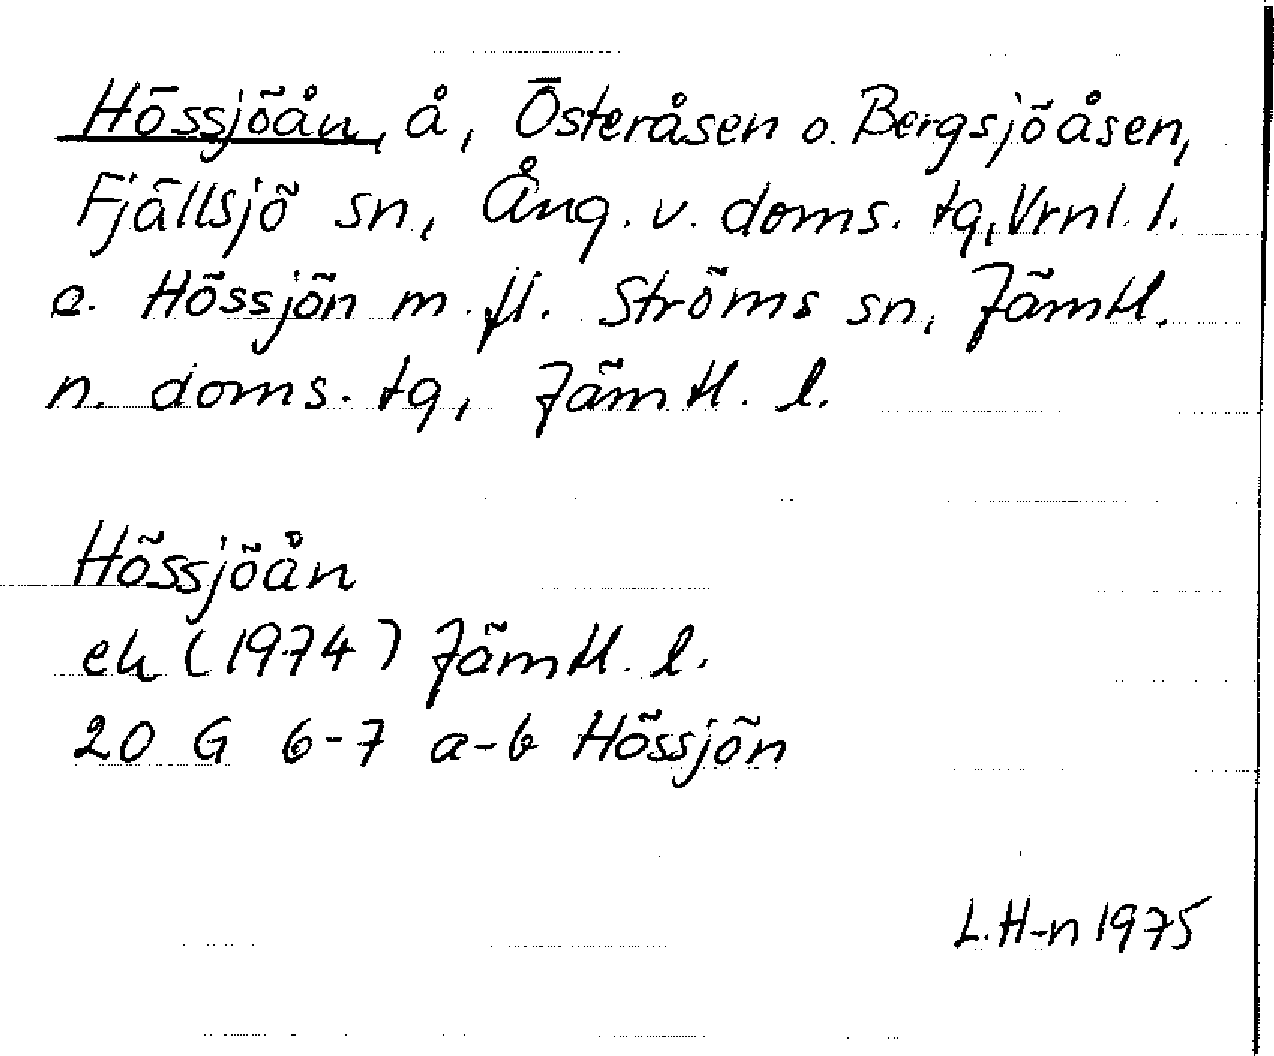 Hössjöån, å, Österåsen o. Bergsjöåsen,
Fjällsjö sn, Ång. v. doms. tg, Vrnl. l.
o. Hössjön m. fl. Ströms sn, Jämtl.
n. doms. tg, Jämtl. l.
Hössjöån
ek (1974) Jämtl. l.
20 G 6-7 a-b Hössjön
L.H-n 1975